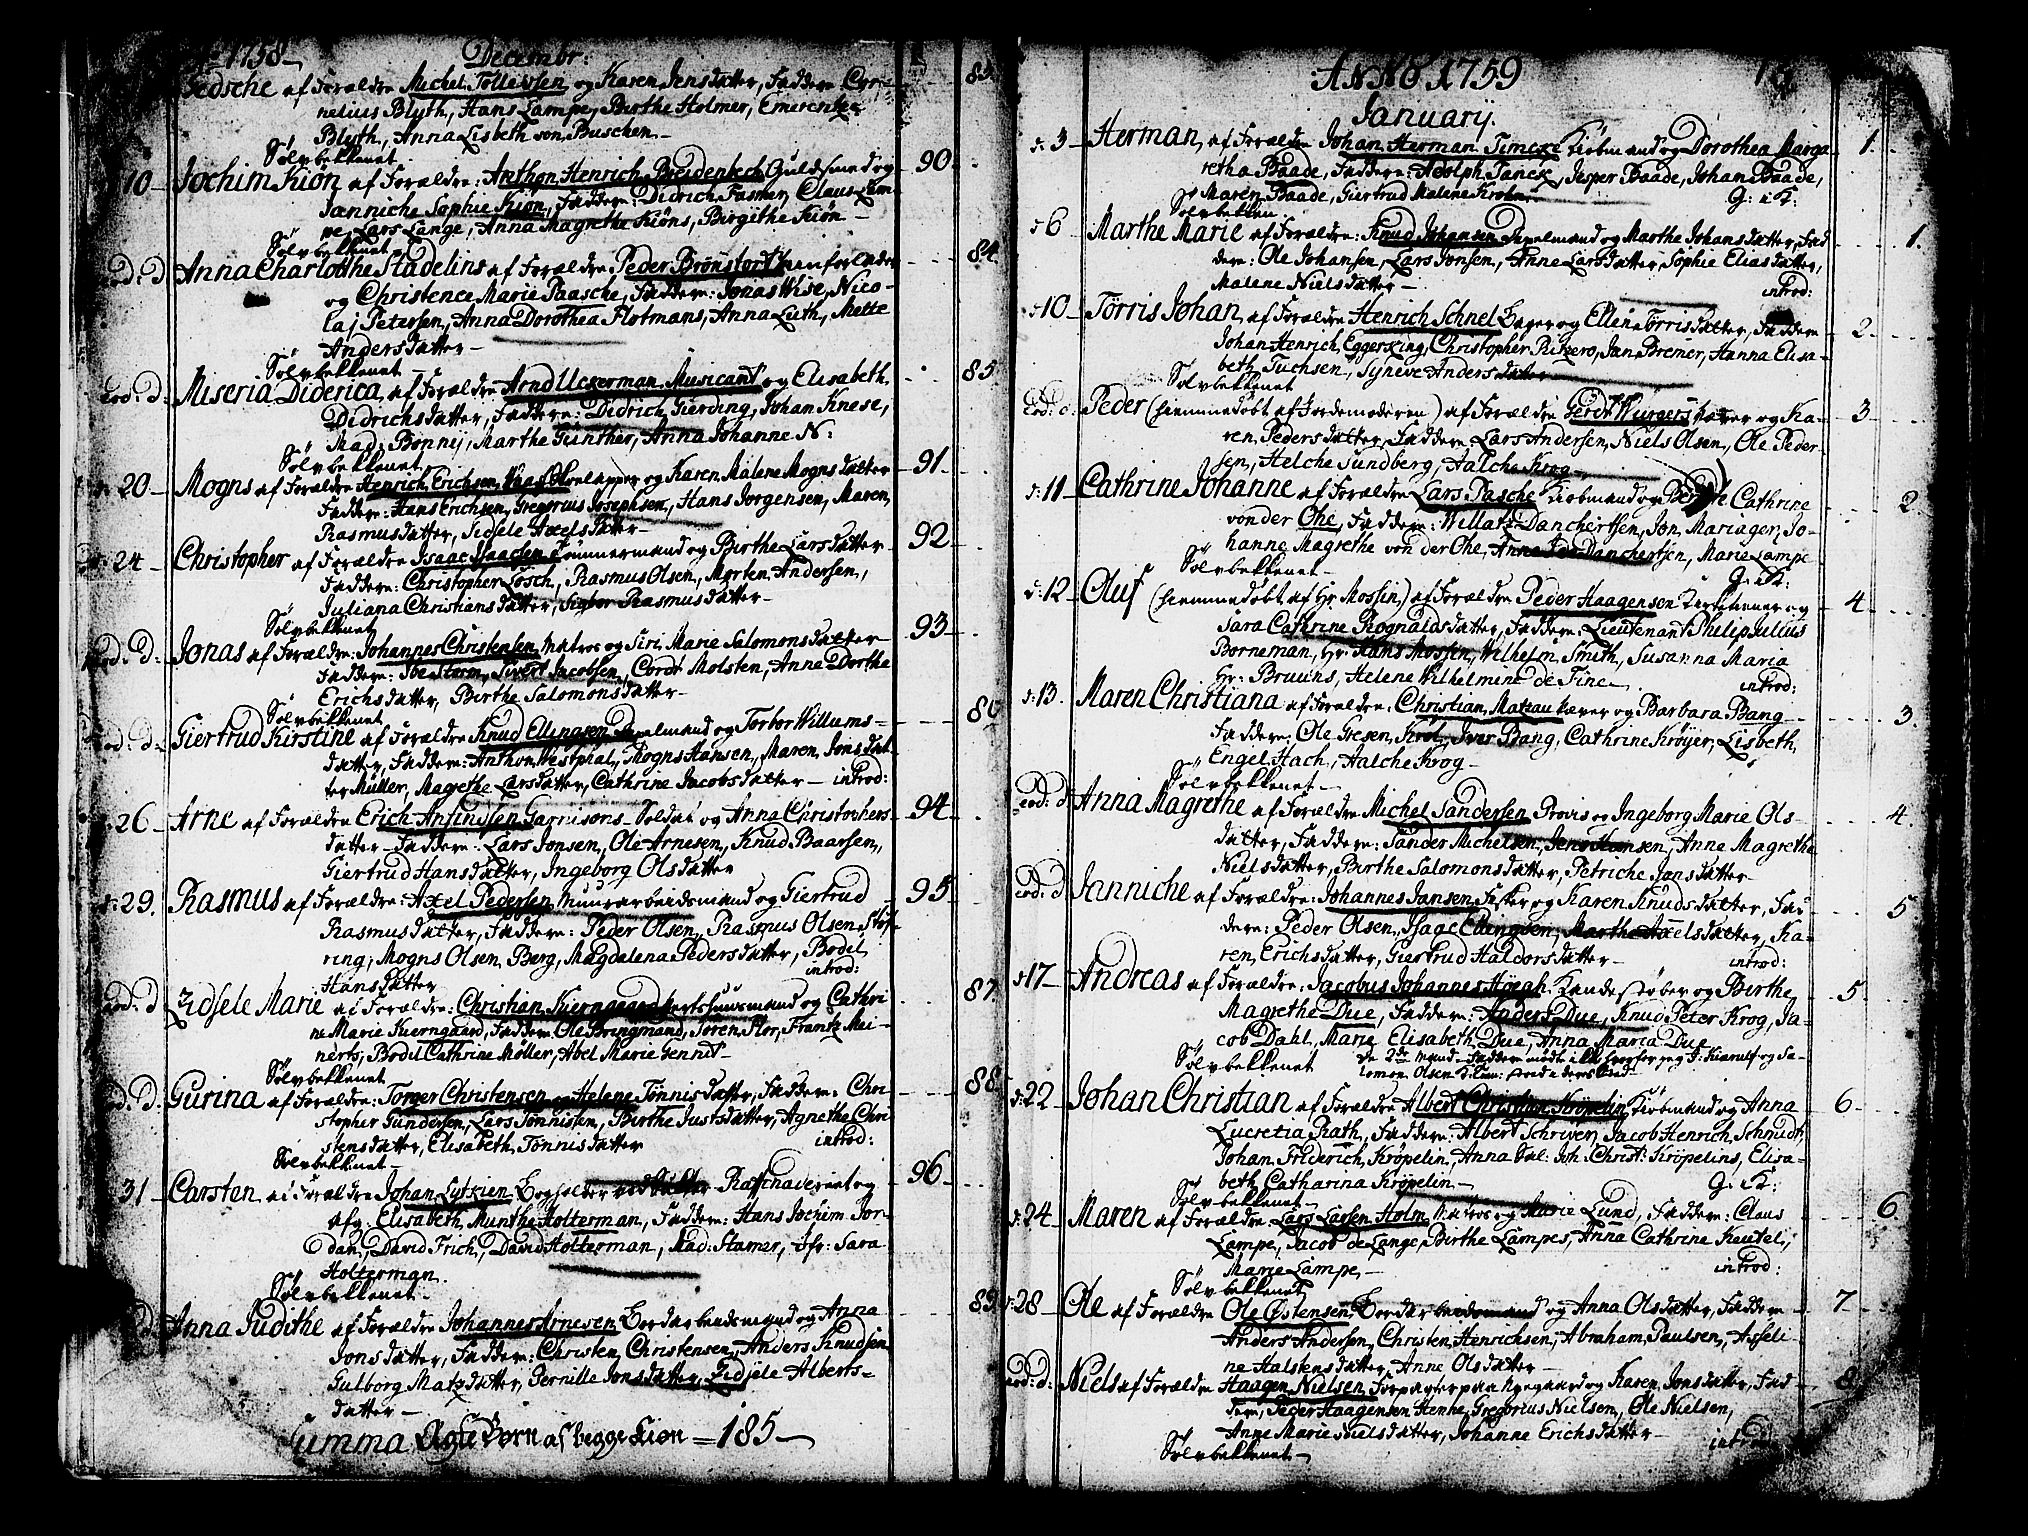 1758 Decembr:
Zedsche af Forældre Michel Tollevsen og Karen Jensdatter, Faddere Cor- 83.
nelius Blyth, Hans Lampe, Birthe Holmer, Emerentze
Blyth, Anna Lisbeth von Buschen
Sølvbekkenet
10 Jochim Kiøn af Forældre: Anthon Henrich Breidenbech Guldsmed og 90.
Janniche Sophie Kiøn, Faddere: Didrich Fasmer, Claus Lam-
pe, Lars Lange, Anna Magrethe Kiøns, Birgithe Kiøn
Sølvbekkenet
eod. d Anna Charlothe Stadelins af Forældre Peder Brønstorf 84.
og Christence Marie Paasche, Faddere: Jonas Wise, Nico-
laj Petersen, Anna Dorothea Flotmans, Anna Luth, Mette
Andersdatter
Sølvbekkenet
eod. d: Miseria Diderica, af Forældre Arnd Uckerman Musicant og Elisabeth 85.
Didrichsdatter, Faddere: Didrich Gierding, Johan Knese,
Mad: Bonny, Marthe Günther, Anna Johanne N:
Sølvbekkenet
20 Mogns af Forældre Henrich Erichsen og Karen Malene Mognsdatter 91.
Faddere: Hans Erichsen, Gregorius Josephsen, Hans Jørgensen, Maren
Rasmusdatter, Sidsele Axelsdatter
24 Christopher af Forældre Isaac Isaacsen Tømmermand og Birthe Larsdatter 92
Faddere: Christopher Losch, Rasmus Olsen, Morten Andersen,
Juliana Christiansdatter, Sigbor Rasmusdatter
Sølvbekkenet
eod. d. Jonas af Forældre: Johannes Christensen Matros og Siri Marie Salomonsdatter 93
Faddere: Ibe Storm, Sivert Jacobsen, Cordt Molsten, Anne Dorthe
Erichsdatter, Birthe Salomonsdatter
Sølvbekkenet
eod. d. Giertrud Kirstine af Forældre Knud Ellingsen og Torbor Willums- 86
datter, Faddere: Anthon Westphal, Mogns Hansen, Maren Jonsdat
ter Müller, Magrethe Larsdatter, Cathrine Jacobsdatter introd:
26 Arne af Forældre Erich Anfindsen Garnisons Soldat og Anna Christophers 94
datter Faddere: Lars Jonsen, Ole Arnesen, Knud Baarsen,
Giertrud Hansdatter, Ingeborg Olsdatter
29. Rasmus af Forældre: Axel Pedersen Muurarbeidsmand og Giertrud 95
Rasmusdatter, Faddere: Peder Olsen, Rasmus Olsen
ring, Mogns Olsen Berg, Magdalena Pedersdatter, Bodel
Hansdatter introd:
eod. d Zidsele Marie af Forældre: Christian Kierngaard og Cathri 87.
ne Marie Kierngaard, Faddere: Ole Bringmand, Søren Flor, Frantz Mei-
nerts, Bodil Cathrine Møller, Abel Marie Gennet
Sølvbekkenet
eod. d. Gurina af Forældre: Torger Christensen og Helene Tønnisdatter, Faddere: Chri 88.
stopher Gundersen, Lars Tønnissen, Birthe Justsdatter, Agnethe Chri
stensdatter, Elisabeth Tønnisdatter introd:
Sølvbekkenet
31 Carsten af Forældre Johan Lytkien Bogholder ved Raffinaderiet og 96
afg: Elisabeth Munthe Holterman, Faddere: Hans Jochim Jor-
dan, David Frich, David Holterman, Mad: Stamer, Jfr: Sara
Holterman
Sølvbekkenet
d: Anna Judithe af Forældre Johannes Arnesen Bordarbeidsmand og Anna 89.
Jonsdatter, Faddere: Christen Christensen, Anders Knudsen
Gulborg Matzdatter, Pernille Jonsdatter, Zidsele Alberts-
datter
Summa Ægte Børn af begge Kiøn = 185
ANNO 1759
January
d: 3 Herman, af Forældre Johan Herman Timcke Kiøbmand og Dorothea Marga 1.
retha Baade, Faddere: Adolph Janck, Jesper Baade, Johan Baade,
Maren Baade, Giertrud Malene Krohn G: i K:
Sølvbekken
d: 6 Marthe Marie af Forældre: Knud Johansen og Marthe Johansdatter, Fad 1.
dere: Ole Johansen, Lars Jonsen, Anne Larsdatter, Sophie Eliasdatter,
Malene Nielsdatter introd:
d: 10 Tørris Johan, af Forældre Henrich Schnel Bager og Ellen Tørrisdatter, Faddere 2.
Johan Henrich Eggerking, Christopher Rikzero, Jan Bremer, Hanna Elisa-
beth Fuchsen, Synneve Andersdatter
Sølvbekkenet
eod: d: Peder (hiemmedøbt af Jordemoderen) af Forældre Gerdt Wurgers og Ka- 3
ren Pedersdatter, Faddere: Lars Andersen, Niels Olsen, Ole Peder-
sen, Helche Sundberg, Aalche Krog
d: 11 Cathrine Johanne af Forældre Lars Pasche Kiøbmand og Cathrine 2.
von der Ohe, Faddere: Willatz Danchertsen, Jon Mariager, Jo-
hanne Magrethe von der Ohe, Anna Danchertsen, Marie Lampe
Sølvbekkenet G: i K:
d: 12 Oluf (hiemmedøbt af Hr Mossin) af Forældre Peder Haagensen og 4.
Sara Cathrine Rognaldsdatter, Faddere: Lieutenant Philip Julius
Borneman, Hr: Hans Mossin, Wilhelm Smith, Susanna Maria
Hr: Bruuns, Helene Wilhelmine de Fine introd:
d: 13. Maren Christiana af Forældre: Christian Matzau og Barbara Bang 3.
Faddere: Ole Gresen Krol, Iver Bang, Cathrine Krøyer, Lisbeth
Engel Hach, Aalche Krog
Sølvbekkenet
eod: d Anna Magrethe af Forældre Michel Sandersen og Ingeborg Marie Ols- 4.
datter, Faddere: Sander Michelsen, Jens Hansen, Anne Magrethe
Nielsdatter, Birthe Salomonsdatter, Petriche Jansdatter
eod: d Janniche af Forældre: Johannes Jansen Fisker og Karen Knudsdatter, Fad 5
dere: Peder Olsen, Isaac Ellingsen, Marthe Axelsdatter, Ka-
ren Erichsdatter, Giertrud Haldorsdatter introd:
d: 17 Andreas af Forældre: Jacobus Johannes Høegh Kandestøber og Birthe 5.
Magrethe Due, Faddere: Anders Due, Knud Peter Krog, Ja-
cob Dahl, Marie Elisabeth Due, Anna Maria Due
Sølvbekkenet
d: 22 Johan Christian af Forældre Albert Christian Krøpelin Kiøbmand og Anna 6.
Lucretia Rath, Faddere: Albert Schriver, Jacob Henrich Schmidt,
Johan Friderich Krøpelin, Anna Sal: Joh: Christ: Krøpelins, Elisa-
beth Catharina Krøpelin G: i K:
Sølvbekkenet
d: 24 Maren af Forældre Lars Larsen Holm Matros og Marie Lund, Faddere: Claus 6.
Lampe, Jacob de Lange, Birthe Lampes, Anna Cathrine Keutel,
Marie Lampe introd:
Sølvbekkenet
d: 28 Ole af Forældre Ole Østensen Bordarbeidsmand og Anna Olsdatter, Faddere 7.
Anders Andersen, Christen Henrichsen, Abraham Paulsen, Asseli-
ne Halstensdatter, Anne Olsdatter
eod: d: Niels af Forældre Haagen Nielsen Forpagter paa og Karen Jonsdatter, Fad 8
dere, Peder Haagensen Henke, Gregorius Nielsen, Ole Nielsen,
Anne Marie Nielsdatter, Johanne Erichsdatter
Sølvbekkenet introd